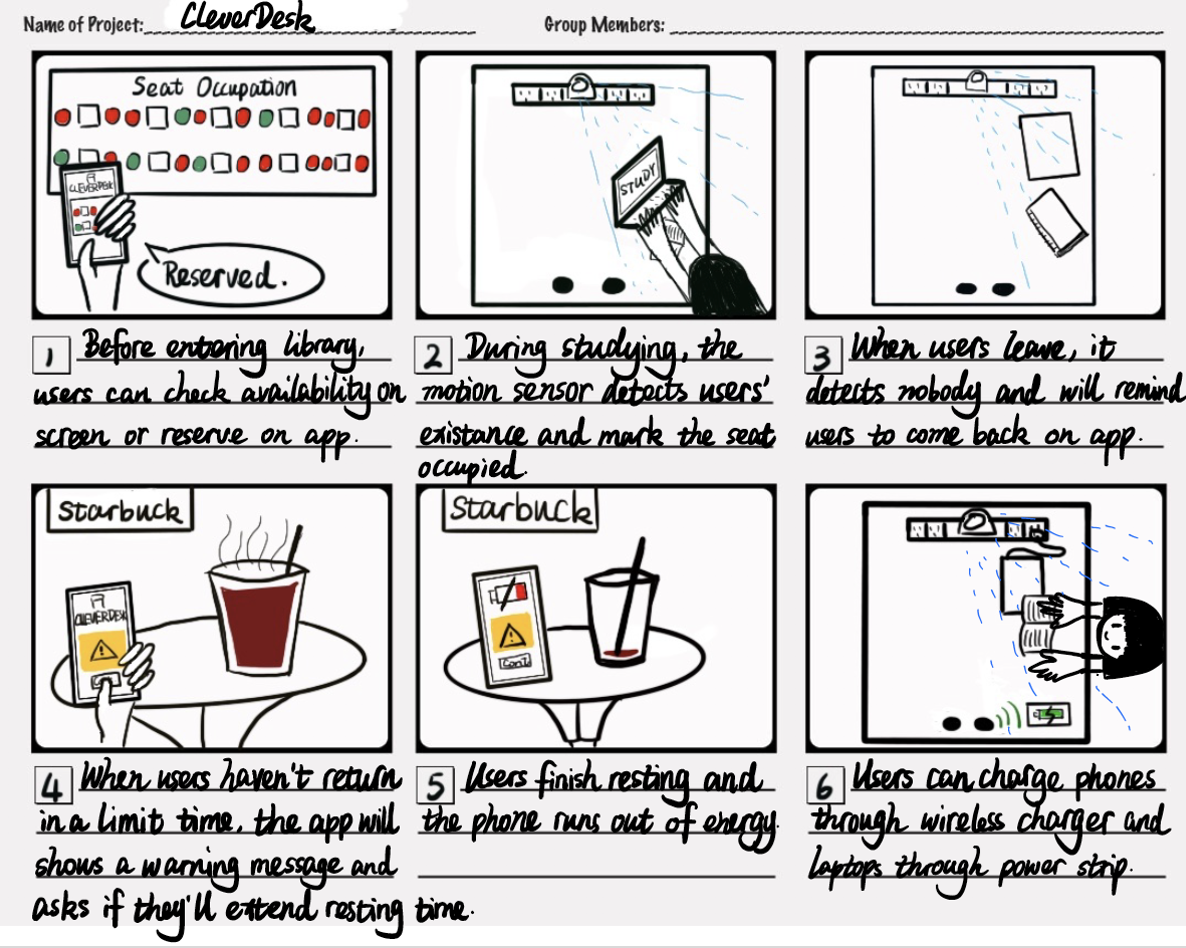 Name of Project: CleverDesk
Group Members:
Seat Occupation
CLEVERDESK
Reserved.
1 Before entering library,
users can check availability on
screen or reserve on app.
STUDY
2 During studying, the
motion sensor detects users'
existance and mark the seat
occupied.
3 When users leave, it
detects nobody and will remind
users to come back on app.
Starbuck
CLEVERDESK
4 When users haven't return
in a limit time, the app will
shows a warning message and
asks if they'll extend resting time.
Starbuck
5 Users finish resting and
the phone runs out of energy.
6 Users can charge phones
through wireless charger and
laptops through power strip.